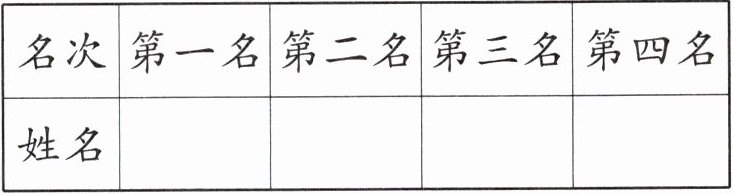 名次 第一名 第二名 第三名 第四名
姓名